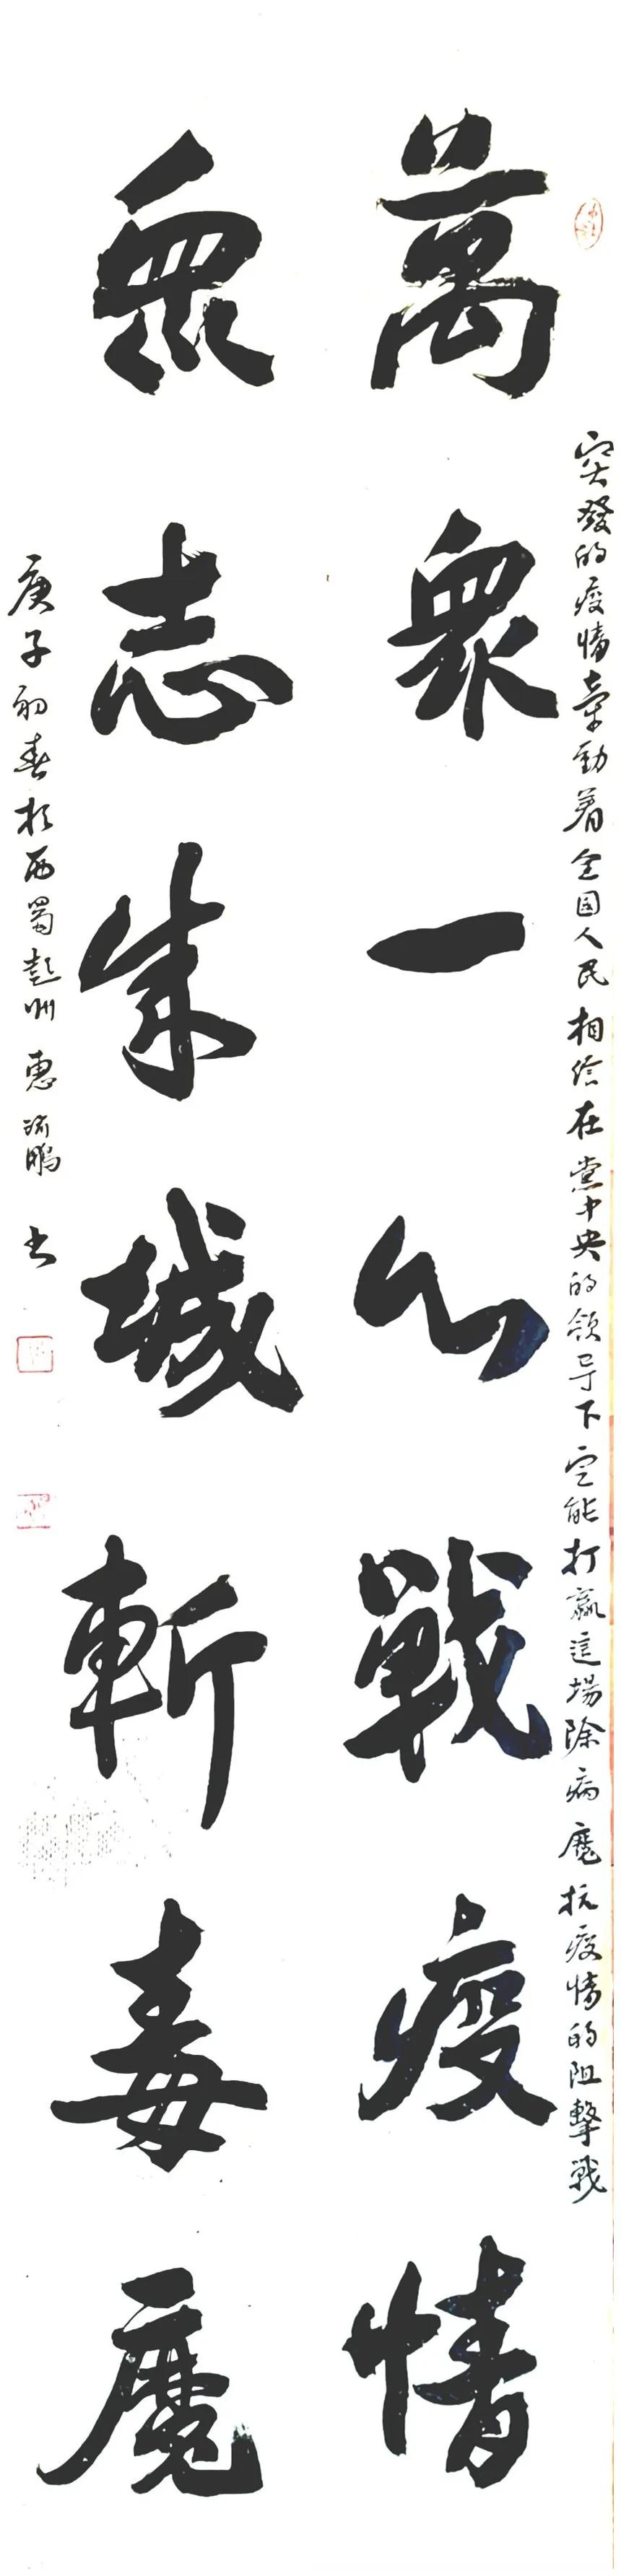 突發的疫情牽動着全国人民相信在党中央的領导下定能打贏這場除病魔抗疫情的阻擊戰
萬眾一心戰疫情
眾志成城斬毒魔
庚子初春於西蜀彭州惠鵬书